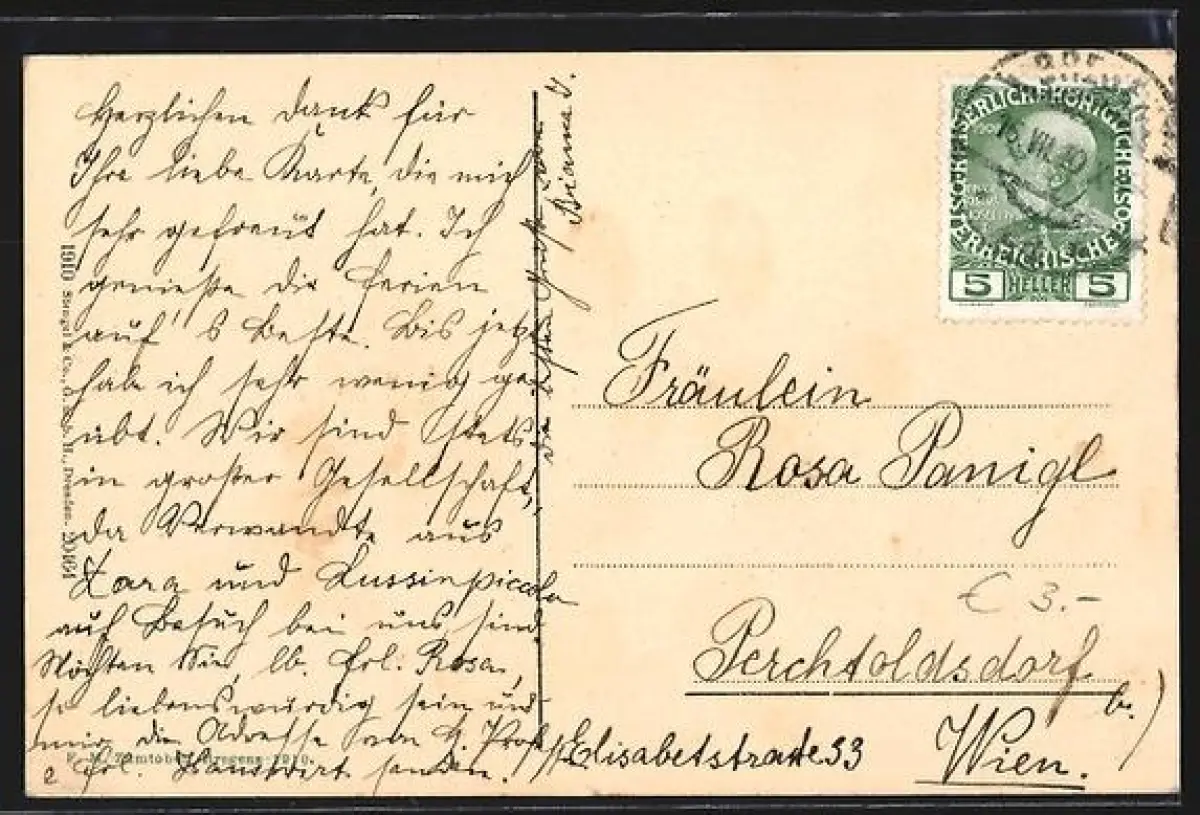 Herzlichen Dank für
Ihre liebe Karte, die mich
sehr gefreut hat. Ich
genieße die Ferien
auf's Beste. Bis jetzt
habe ich sehr wenig ge-
übt. Wir sind stets
in großer Gesellschaft,
da Verwandte aus
Zara und Lussinpiccolo
auf Besuch bei uns sind.
Möchten Sie, lb. Frl. Rosa,
so liebenswürdig sein und
mir die Adresse von H. Prof.
e Frl. senden.
Bianca
1910 Stengel & Co., G. m. b. H., Dresden. 20464
KAISERLICHE KÖNIGLICHE
ÖSTERREICHISCHE POST
5 HELLER 5
15.VII.10
Fräulein
Rosa Panigl
€ 3.-
Perchtoldsdorf
b.)
Elisabetstraße 33
Wien.